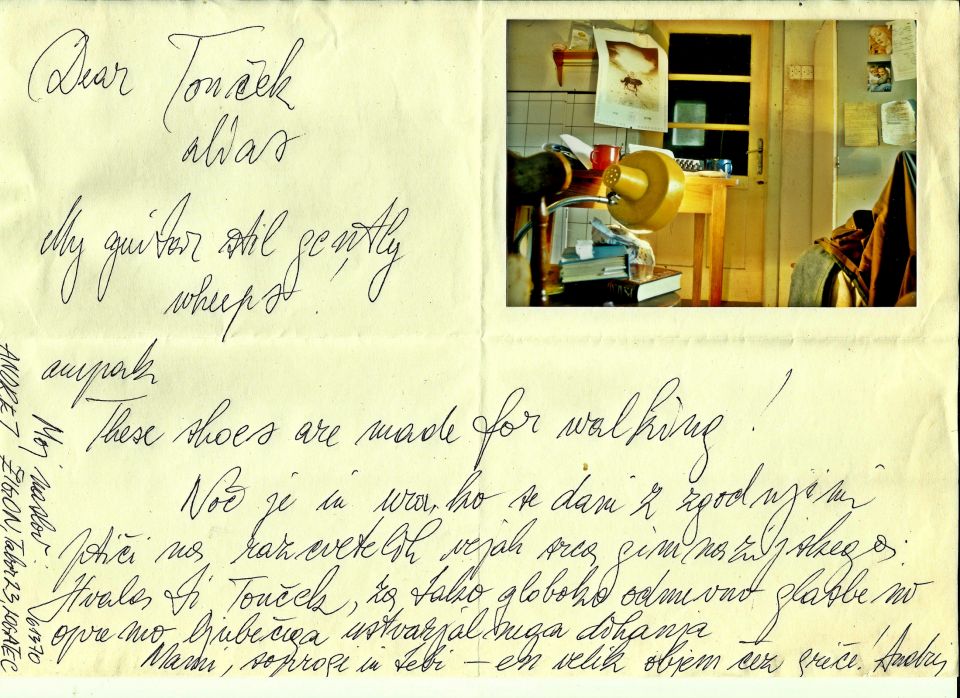 Dear Tonček
alias
My guitar stil gently
wheeps
ampak
These shoes are made for walking!
Noč je in ura, ko se dani z zgodnjimi
ptiči na razcvetelih vejah srca gimnazijskega.
Hvala ti Tonček, za tako globoko odmevno glasbeno
opremo ljubečega ustvarjalnega dihanja
Mami, soprogi in tebi – en velik objem čez griče! Andrej
Moj naslov
ANDREJ ŽIGON Tabor 23, ROGATEC